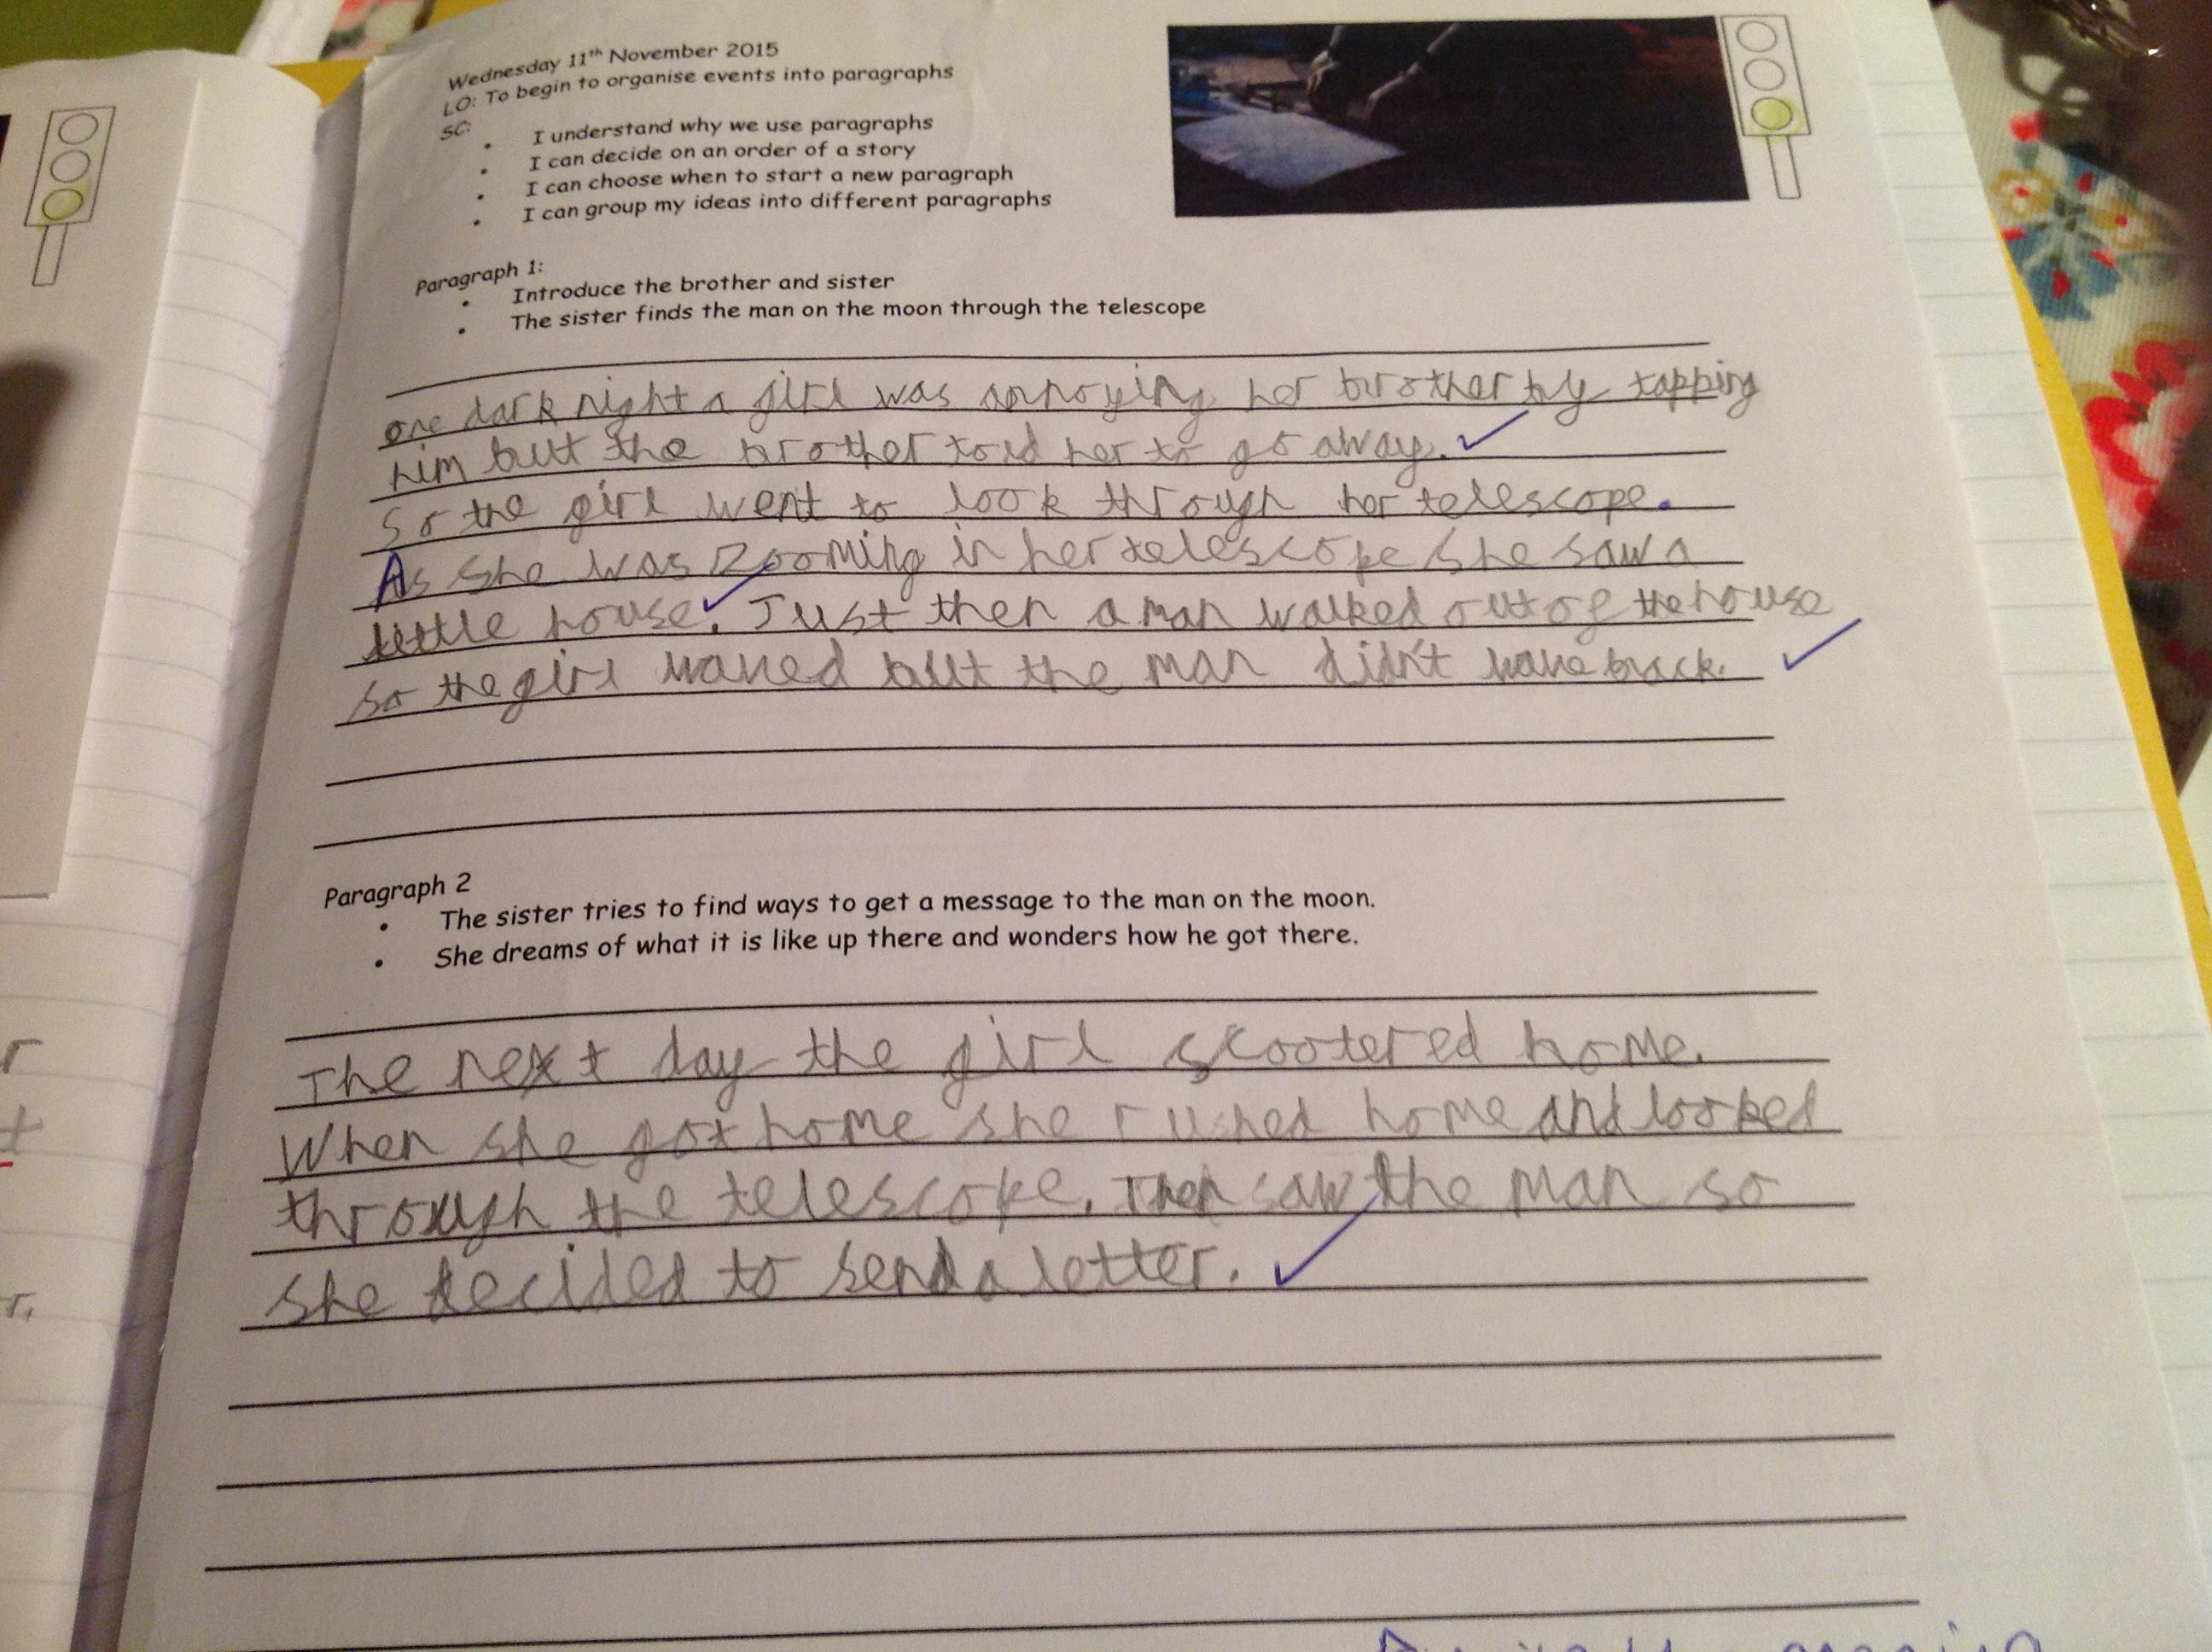 Wednesday 11th November 2015
LO: To begin to organise events into paragraphs
SC:
• I understand why we use paragraphs
• I can decide on an order of a story
• I can choose when to start a new paragraph
• I can group my ideas into different paragraphs
Paragraph 1:
• Introduce the brother and sister
• The sister finds the man on the moon through the telescope
one dark night a girl was annoying her brother by tapping
him but the brother told her to go away.
So the girl went to look through her telescope.
As she was zooming in her telescope she saw a
little house. Just then a man walked out of the house
so the girl waved but the man didn't wave back.
Paragraph 2
• The sister tries to find ways to get a message to the man on the moon.
• She dreams of what it is like up there and wonders how he got there.
The next day the girl scootered home.
When she got home she rushed home and looked
through the telescope. Then saw the man so
she decided to send a letter.